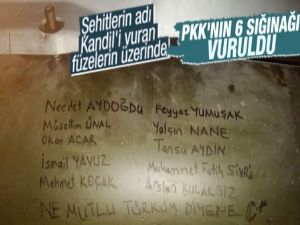 Şehitlerin adı
Kandil'i vuran
füzelerin üzerinde
PKK'NIN 6 SIĞINAĞI
VURULDU
Necdet AYDOĞDU
Feyyaz YUMUŞAK
Müsellim ÜNAL
Yalçın NANE
Okan ACAR
Tansu AYDIN
İsmail YAVUZ
Muhammet Fatih SİVRİ
Mehmet KOÇAK
Arslan KULAKSIZ
NE MUTLU TÜRKÜM DİYENE